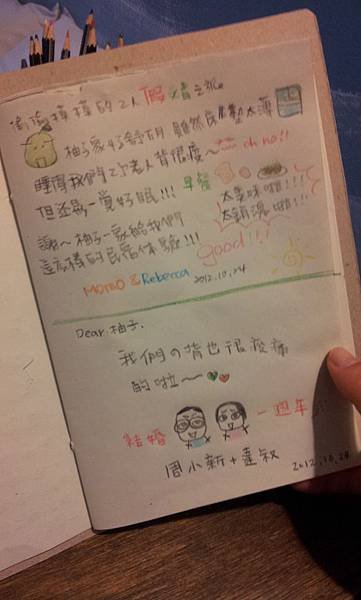 的2人假婚之旅
柚子家好舒服 雖然床墊太薄
睡得我們2个老人背很痠～ oh no!!
但还是一覺好眠!!! 早餐
太美味啦!!!
謝～柚子一家給我們
太銷魂啦!!!
這樣的民宿体驗!!!
good!!!
MOMO & Rebecca 2012.10.24
Dear. 柚子.
我們の背也很痠痛
的啦～
結婚 一週年
周小新+達叔
2012.10.28